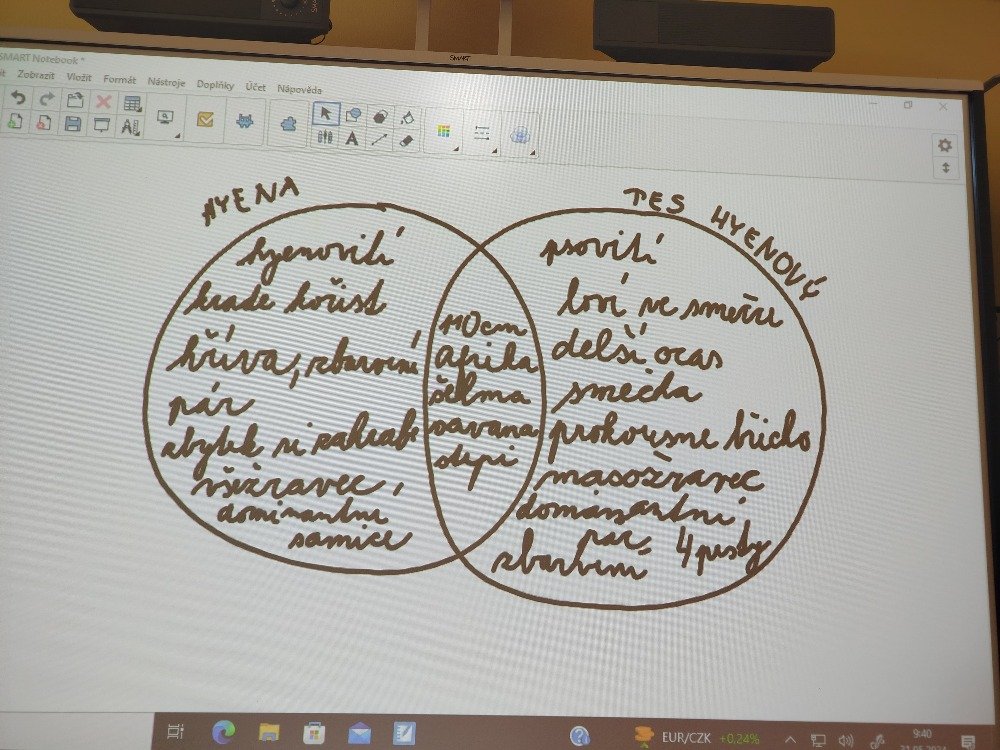 SMART
SMART Notebook *
Zobrazit Vložit Formát Nástroje Doplňky Účet Nápověda
HYENA
hyenovití
krade kořist
hříva, zbarvení
pár
zbytek si zahrabe
všežravec,
dominantní
samice
110cm
afrika
šelma
savana
stepi
PES HYENOVÝ
psovití
loví ve smečce
delší ocas
smečka
prokousne břicho
masožravec
dominantní
pár 4 prsty
zbarvení
EUR/CZK +0,24%
9:40